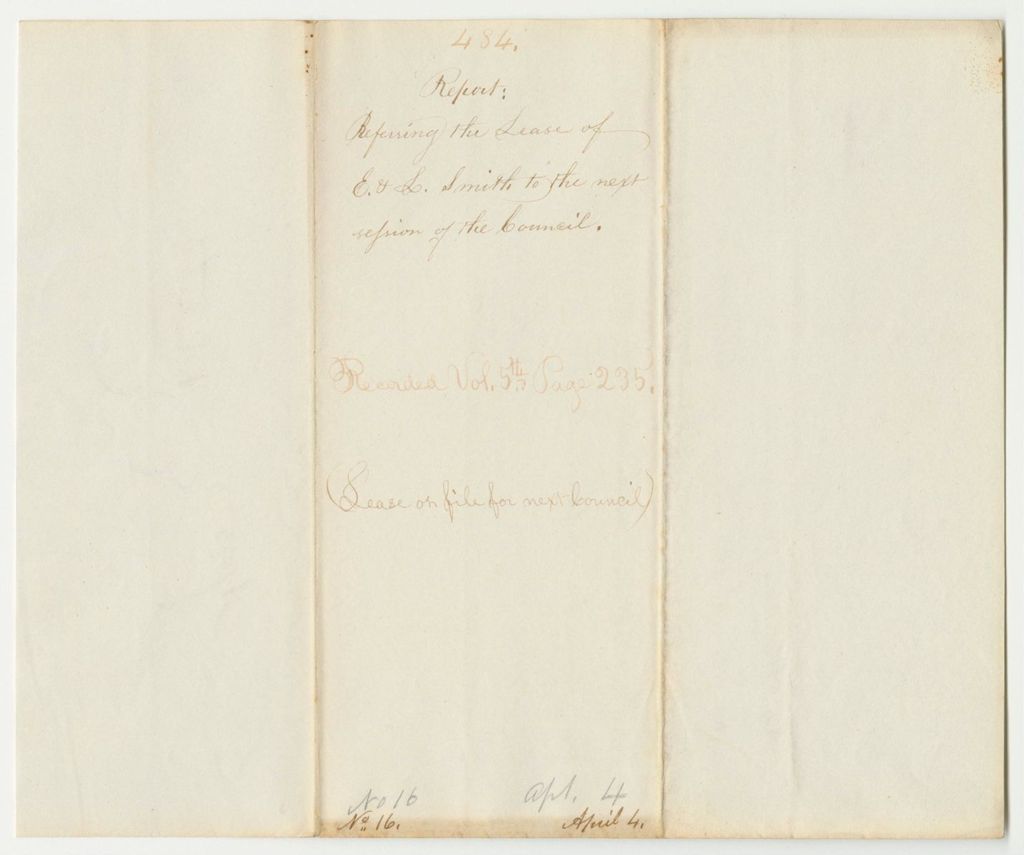 484.
Report:
Referring the Lease of
E. & L. Smith to the next
session of the Council.
Recorded Vol. 5th Page 235.
(Lease on file for next Council)
No 16 Apl. 4
No 16. April 4.